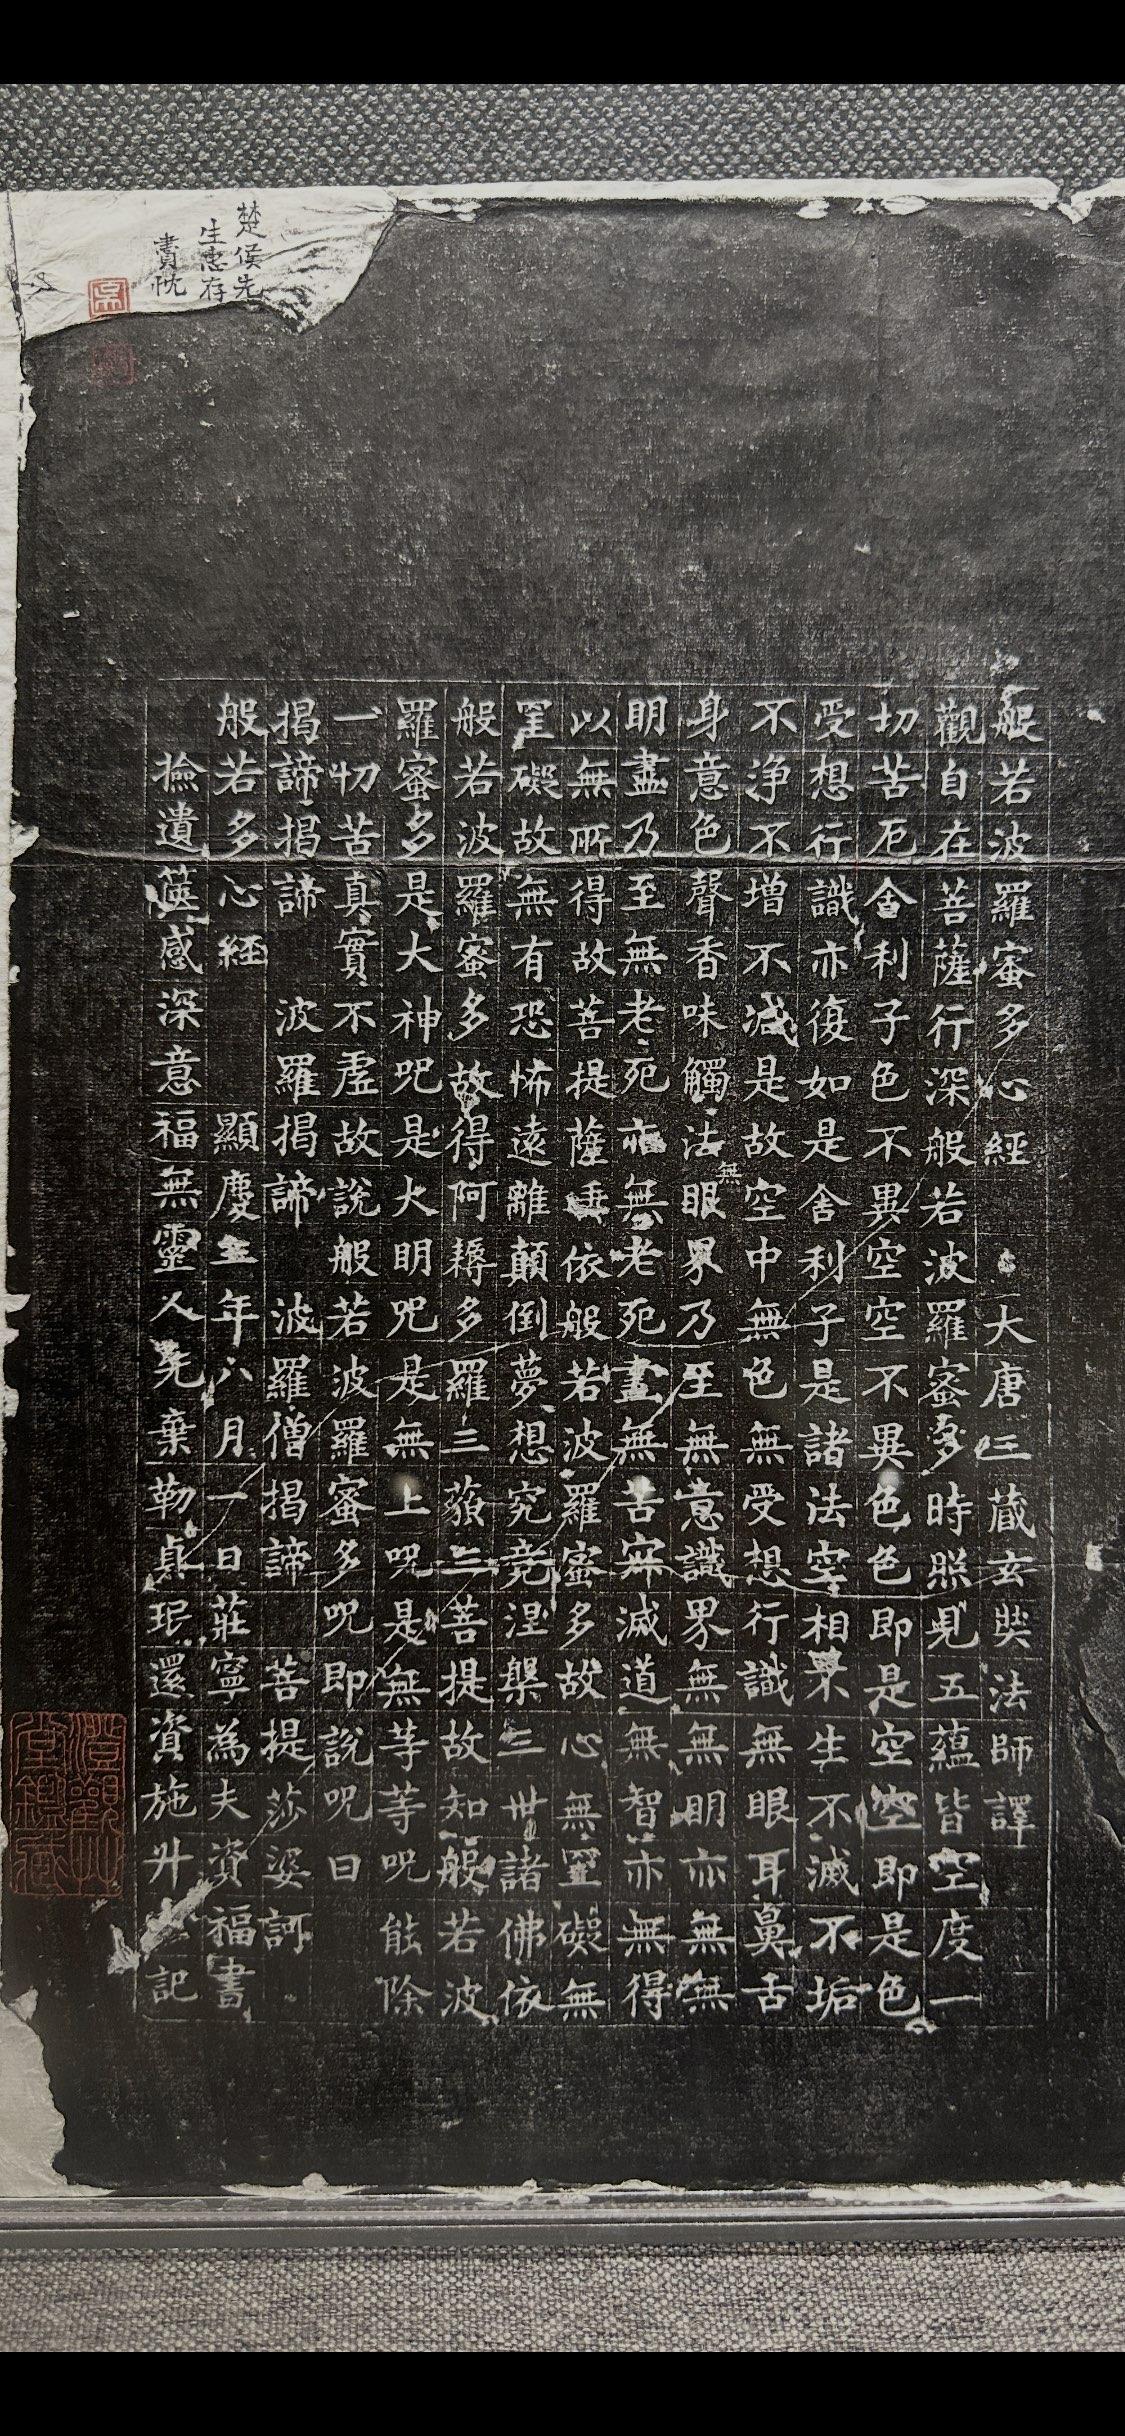 般若波羅蜜多心經　大唐三蔵玄奘法師譯
觀自在菩薩行深般若波羅蜜多時照見五蘊皆空度一
切苦厄舍利子色不異空空不異色色即是空空即是色
受想行識亦復如是舍利子是諸法空相不生不滅不垢
不净不增不減是故空中無色無受想行識無眼耳鼻舌
無
身意色聲香味觸法眼界乃至無意識界無無明亦無無
明盡乃至無老死亦無老死盡無苦寂滅道無智亦無得
以無所得故菩提薩埵依般若波羅蜜多故心無罣礙無
罣礙故無有恐怖遠離顛倒夢想究竟涅槃三世諸佛依
般若波羅蜜多故得阿耨多羅三藐三菩提故知般若波
羅蜜多是大神呪是大明呪是無上呪是無等等呪能除
一切苦真實不虛故說般若波羅蜜多呪即說呪曰
揭諦揭諦　波羅揭諦　波羅僧揭諦　菩提莎婆訶
般若多心經　顯慶三年六月一日莊寧為夫資福書
撿遺篋感深意福無靈人先棄勒貞珉還資施廾記
楚侯先
生惠存
賣忱
澄觀
堂鑑藏